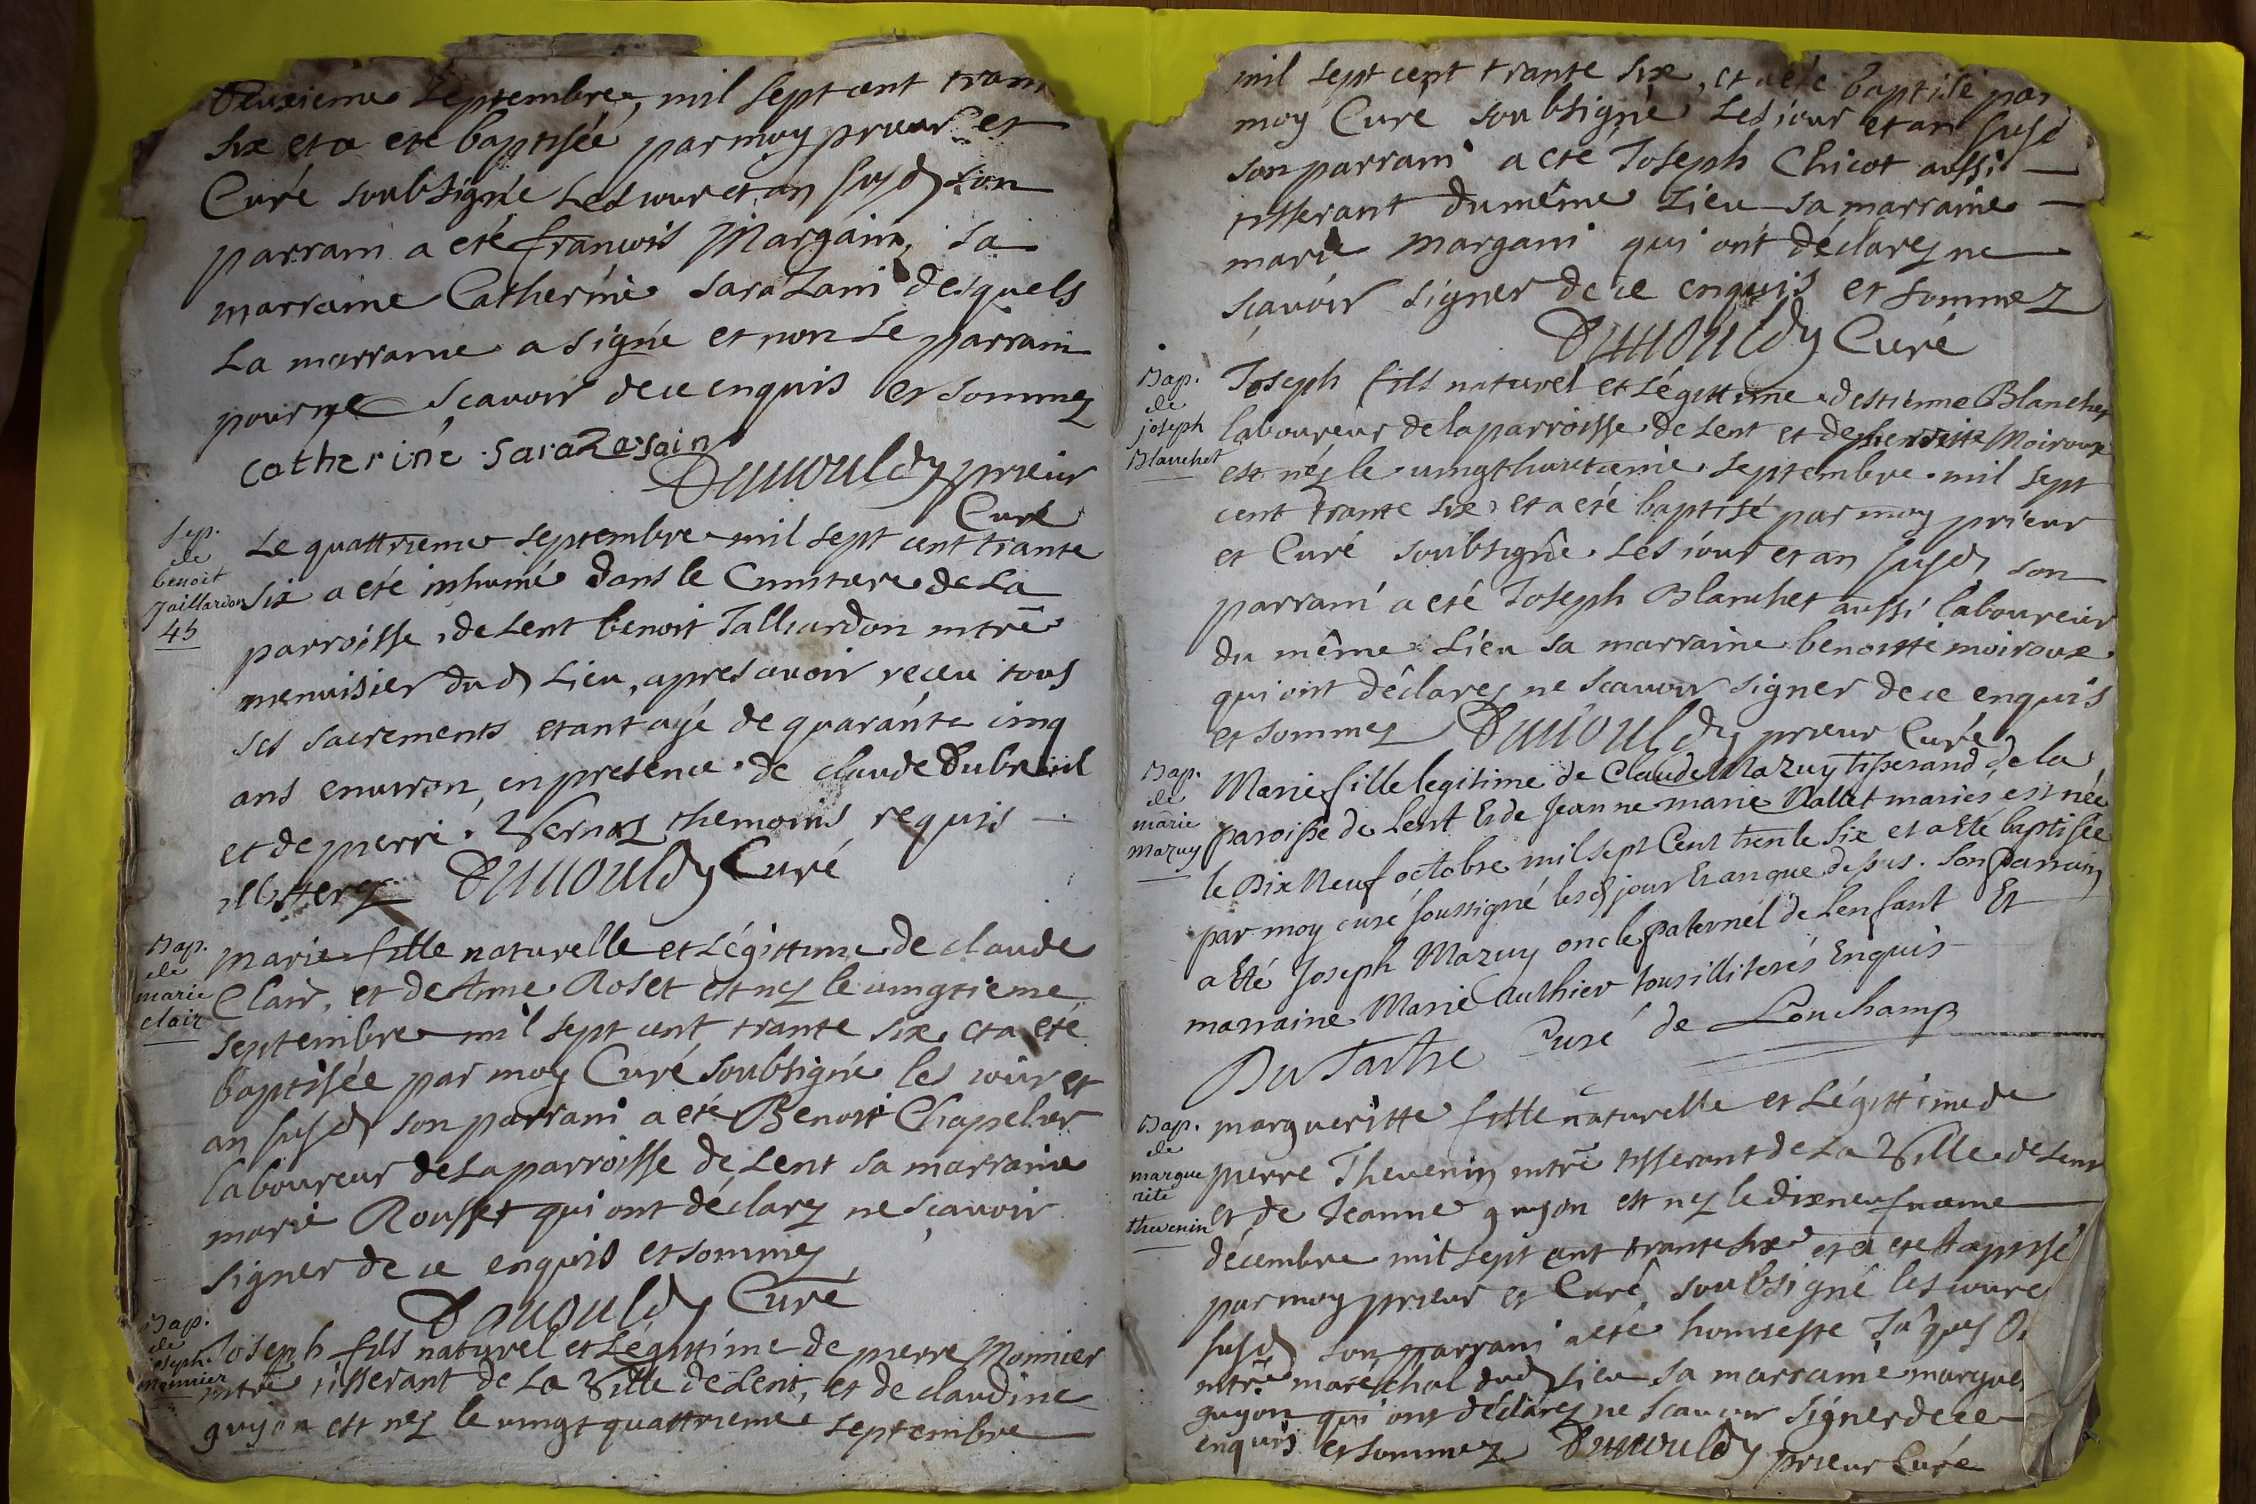 deuxieme septembre, mil sept cent tran
six et a eté baptisée par moy prieur et
Curé soubsigné les iour et an susd son
parrain a eté francois Margain, sa
marraine Catherine Sarazain desquels
La marraine a signé et non Le parrain
pour ne sçavoir de ce enquis et sommez
Catherine Sarazesain
prieur
Curé
Sep.
de
benoit
Jaillardon
45
Le quattrieme septembre mil sept cent trante
six a eté inhumé dans le Cimitiere de La
parroisse de Lent benoit Talliardon mtre
menuisier dud Lieu, apres avoir receu tous
ses sacrements etant agé de quarante cinq
ans environ, en presence de claude Dubreüil
et de pierre Vernaz themoins requis
illitterez Curé
Bap.
de
marie
clair
Marie fille naturelle et Légittime de claude
Clair, et de Anne Roset est nez le vingtieme
septembre mil sept cent trante six et a eté
baptisée par moy Curé soubsigné les iour et
an susd son parrain a eté Benoit Chapelier
laboureur de La parroisse de Lent sa marraine
marie Rousset qui ont déclarez ne sçavoir
signer de ce enquis et sommez
Curé
Bap.
de
joseph
monnier
Joseph fils naturel et Légittime de pierre Monnier
mtre tisserant de La Ville de Lent, et de claudine
guyon est nez le vingt quattrieme septembre
mil sept cent trante six, et a eté baptisé par
moy Curé soubsigné Les iour et an susd
son parrain a eté Joseph Chicot aussi
tisserant du même Lieu sa marraine
marie margain qui ont déclarez ne
sçavoir signer de ce enquis et sommez
Curé
Bap.
de
joseph
Blanchet
Joseph fils naturel et Légittime d'estienne Blanchet
laboureur de la parroisse de Lent et de Moiroux
est néz le vingt huictieme septembre mil sept
cent trante six et a eté baptisé par moy prieur
et Curé soubsigné les iour et an susd son
parrain a eté Joseph Blanchet aussi laboureur
du même Lieu sa marraine benoitte moiroux
qui ont déclarez ne sçavoir signer de ce enquis
et sommez prieur Curé
Bap.
de
marie
mazuy
Marie fille legitime de Claude Mazuy tisserand de la
paroisse de Lent Et de Jeanne marie Vallet maries est née
le Dix Neuf octobre mil sept Cent trente Six et a Eté baptisée
par moy curé soussigné lesd jour Et an que dessus. Son Parrain
a Eté Joseph Mazuy oncle paternel de Lenfant Et
marraine Marie Authier tous illiterés Enquis
DuTartre Curé de Lonchamp
Bap.
de
margue
rite
thevenin
margueritte fille naturelle et Légittime de
pierre Thevenin mtre tisserant de La Ville de Lent
et de Jeanne guyon est nez le dixneufvieme
décembre mil sept cent trante six et a eté baptisé
par moy prieur et Curé soubsigné les iour e
susd son parrain a eté honneste Jâques
mtre maréchal dud Lieu sa marraine margue
guyon qui ont déclarez ne sçavoir signer de ce
enquis et sommez prieur Curé